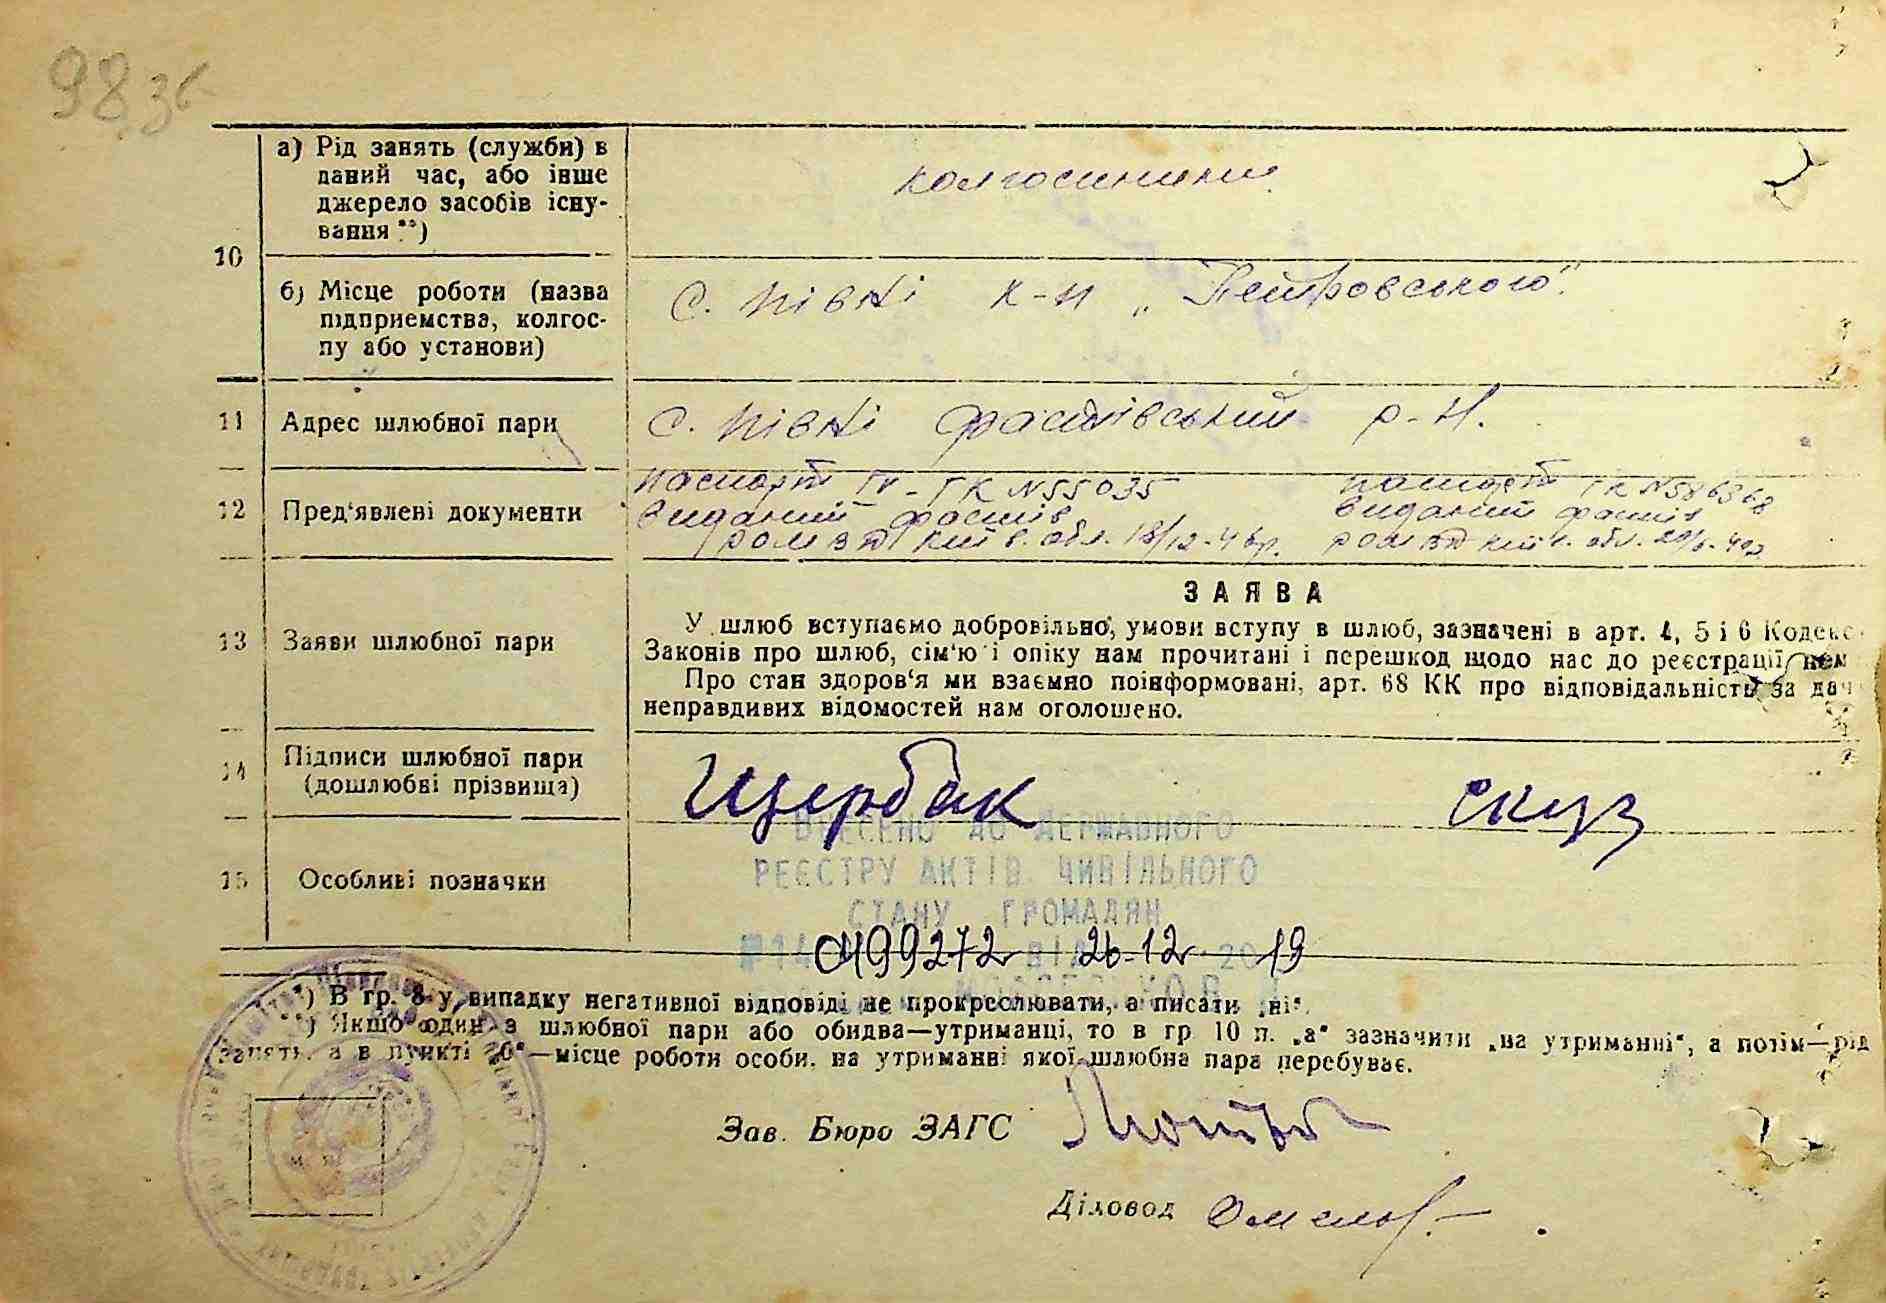 98 зв
10
а) Рід занять (служби) в
даний час, або інше
джерело засобів існу-
вання **)
колгоспники
б) Місце роботи (назва
підприємства, колгос-
пу або установи)
с. Півні к-п „Петровського"
11
Адрес шлюбної пари
с. Півні Фастівський р-н.
12
Пред'явлені документи
паспорт IV-ГК N 55035
виданий Фастів
РОМВД Київ. обл. 18/12-46р.
паспорт ГК N 586368
виданий Фастів
РОМВД Київ. обл.
13
Заяви шлюбної пари
ЗАЯВА
У шлюб вступаємо добровільно, умови вступу в шлюб, зазначені в арт. 4, 5 і 6 Кодекс
Законів про шлюб, сім'ю і опіку нам прочитані і перешкод щодо нас до реєстрації нем
Про стан здоров'я ми взаємно поінформовані, арт. 68 КК про відповідальність за дач
неправдивих відомостей нам оголошено.
14
Підписи шлюбної пари
(дошлюбні прізвища)
Щербак
Скуз
15
Особливі позначки
ВНЕСЕНО ДО ДЕРЖАВНОГО
РЕЄСТРУ АКТІВ ЦИВІЛЬНОГО
СТАНУ ГРОМАДЯН
0499272 ВІД 26.12 2019
*) В гр. 8 у випадку негативної відповіді не прокреслювати, а писати „ні".
**) Якщо один з шлюбної пари або обидва—утриманці, то в гр. 10 п. „а" зазначити „на утриманні", а потім—рід
занять, а в пункті „б"—місце роботи особи, на утриманні якої шлюбна пара перебуває.
Зав. Бюро ЗАГС
Діловод